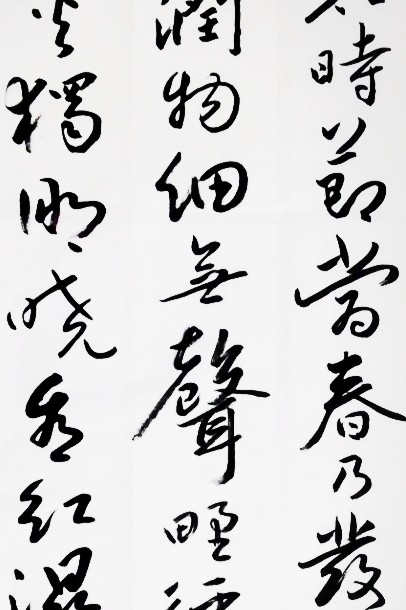 時節當春乃發
潤物細無聲野
火獨明曉看紅